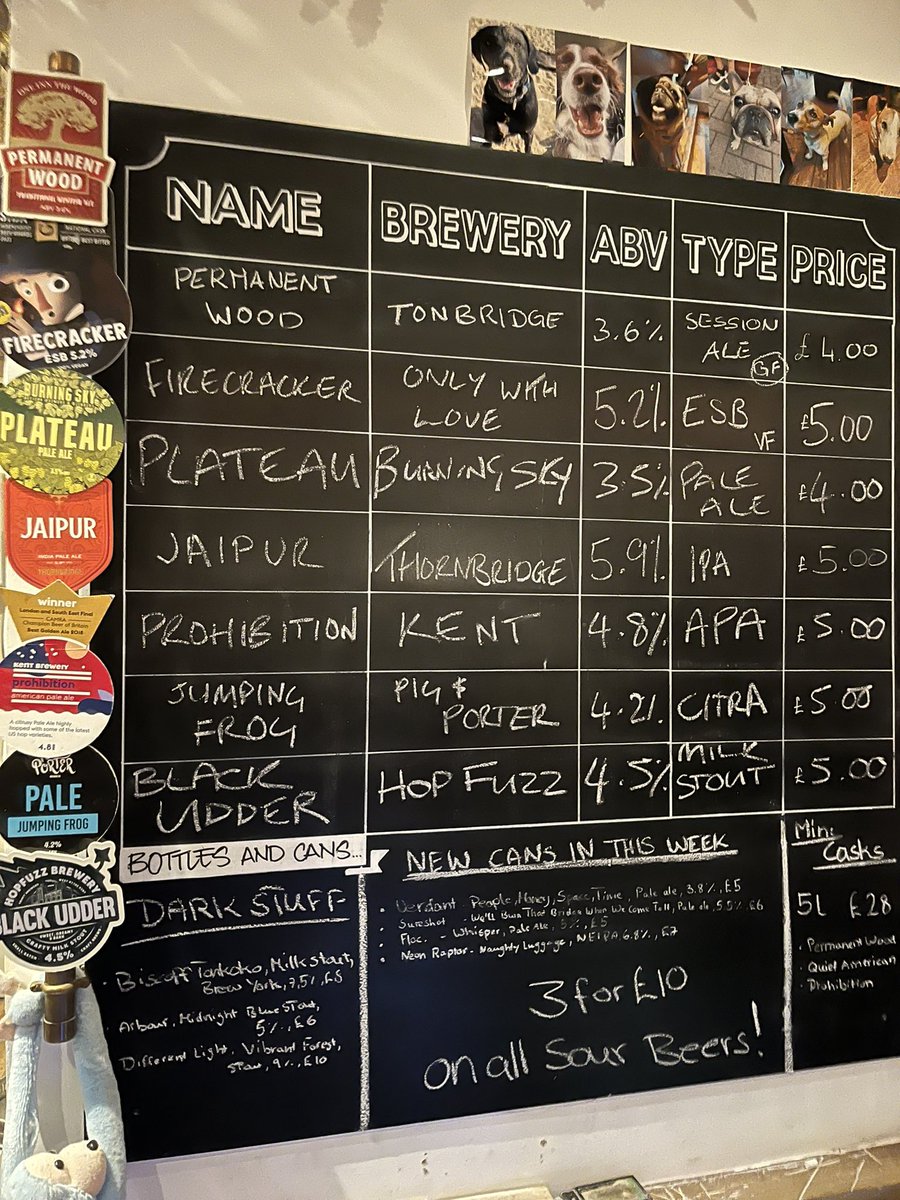 NAME BREWERY ABV TYPE PRICE
PERMANENT WOOD TONBRIDGE 3.6% SESSION ALE GF £4.00
FIRECRACKER ONLY WITH LOVE 5.2% ESB VF £5.00
PLATEAU BURNING SKY 3.5% PALE ALE £4.00
JAIPUR THORNBRIDGE 5.9% IPA £5.00
PROHIBITION KENT 4.8% APA £5.00
JUMPING FROG PIG & PORTER 4.2% CITRA £5.00
BLACK UDDER HOP FUZZ 4.5% MILK STOUT £5.00
BOTTLES AND CANS...
DARK STUFF
Milk stout,
Brew York, 7.5%, £8
Arbour, Midnight Blue Stout,
5%, £6
Different Light, Vibrant Forest,
Stout, 9%, £10
NEW CANS IN THIS WEEK
Verdant - People, Money, Space, Time, Pale ale, 3.8%, £5
Sureshot - We'll Burn That Bridge When We Come To It, Pale ale, 5.5% £6
Floc. - Whisper, Pale Ale, 5%, £5
Neon Raptor - Naughty Luggage, NEIPA 6.8%, £7
3 for £10
on all Sour Beers!
Mini
Casks
5L £28
Permanent Wood
Quiet American
Prohibition
PERMANENT
WOOD
FIRECRACKER
ESB 5.2%
BURNING SKY
PLATEAU
PALE ALE
JAIPUR
INDIA PALE ALE
THORNBRIDGE
winner
London and South East Final
CAMRA
Champion Beer of Britain
Best Golden Ale 2018
KENT Brewery
prohibition
american pale ale
A citrusy Pale Ale highly
hopped with some of the latest
US hop varieties.
PORTER
PALE
JUMPING FROG
4.2%
HOPFUZZ BREWERY
BLACK UDDER
CRAFTY MILK STOUT
4.5%